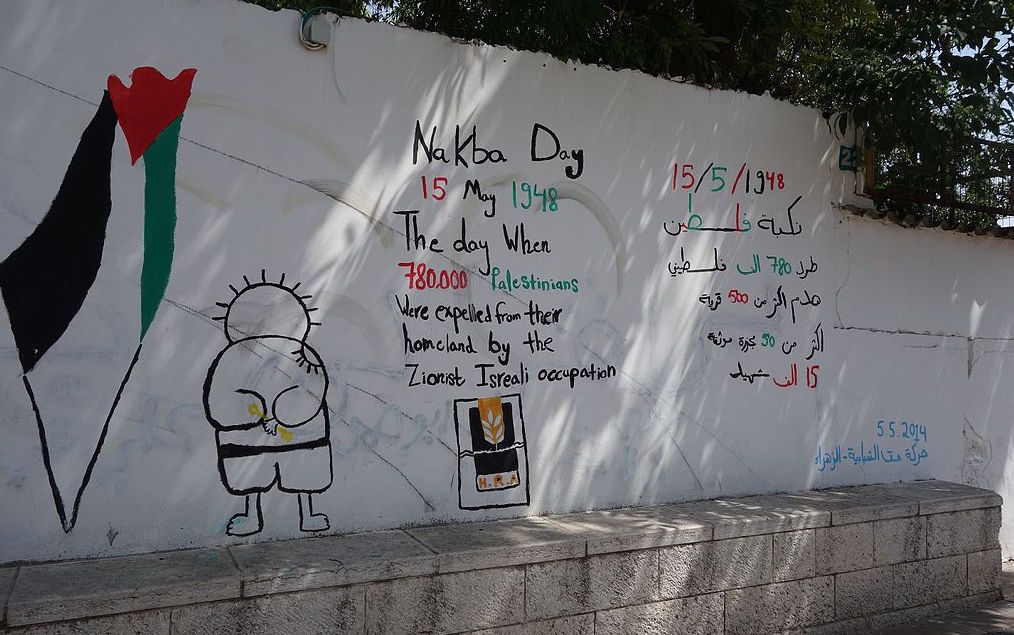 Nakba Day
15 May 1948
The day When
780.000 Palestinians
Were expelled from their
homeland by the
Zionist Isreali occupation
H.R.A
15/5/1948
نكبة فلسطين
طرد 780 الف فلسطيني
هدم اكثر من 500 قرية
اكثر من 50 مجزرة موثقة
15 الف شهيد
22
5.5.2014
حركة الشبابية - الزهراء